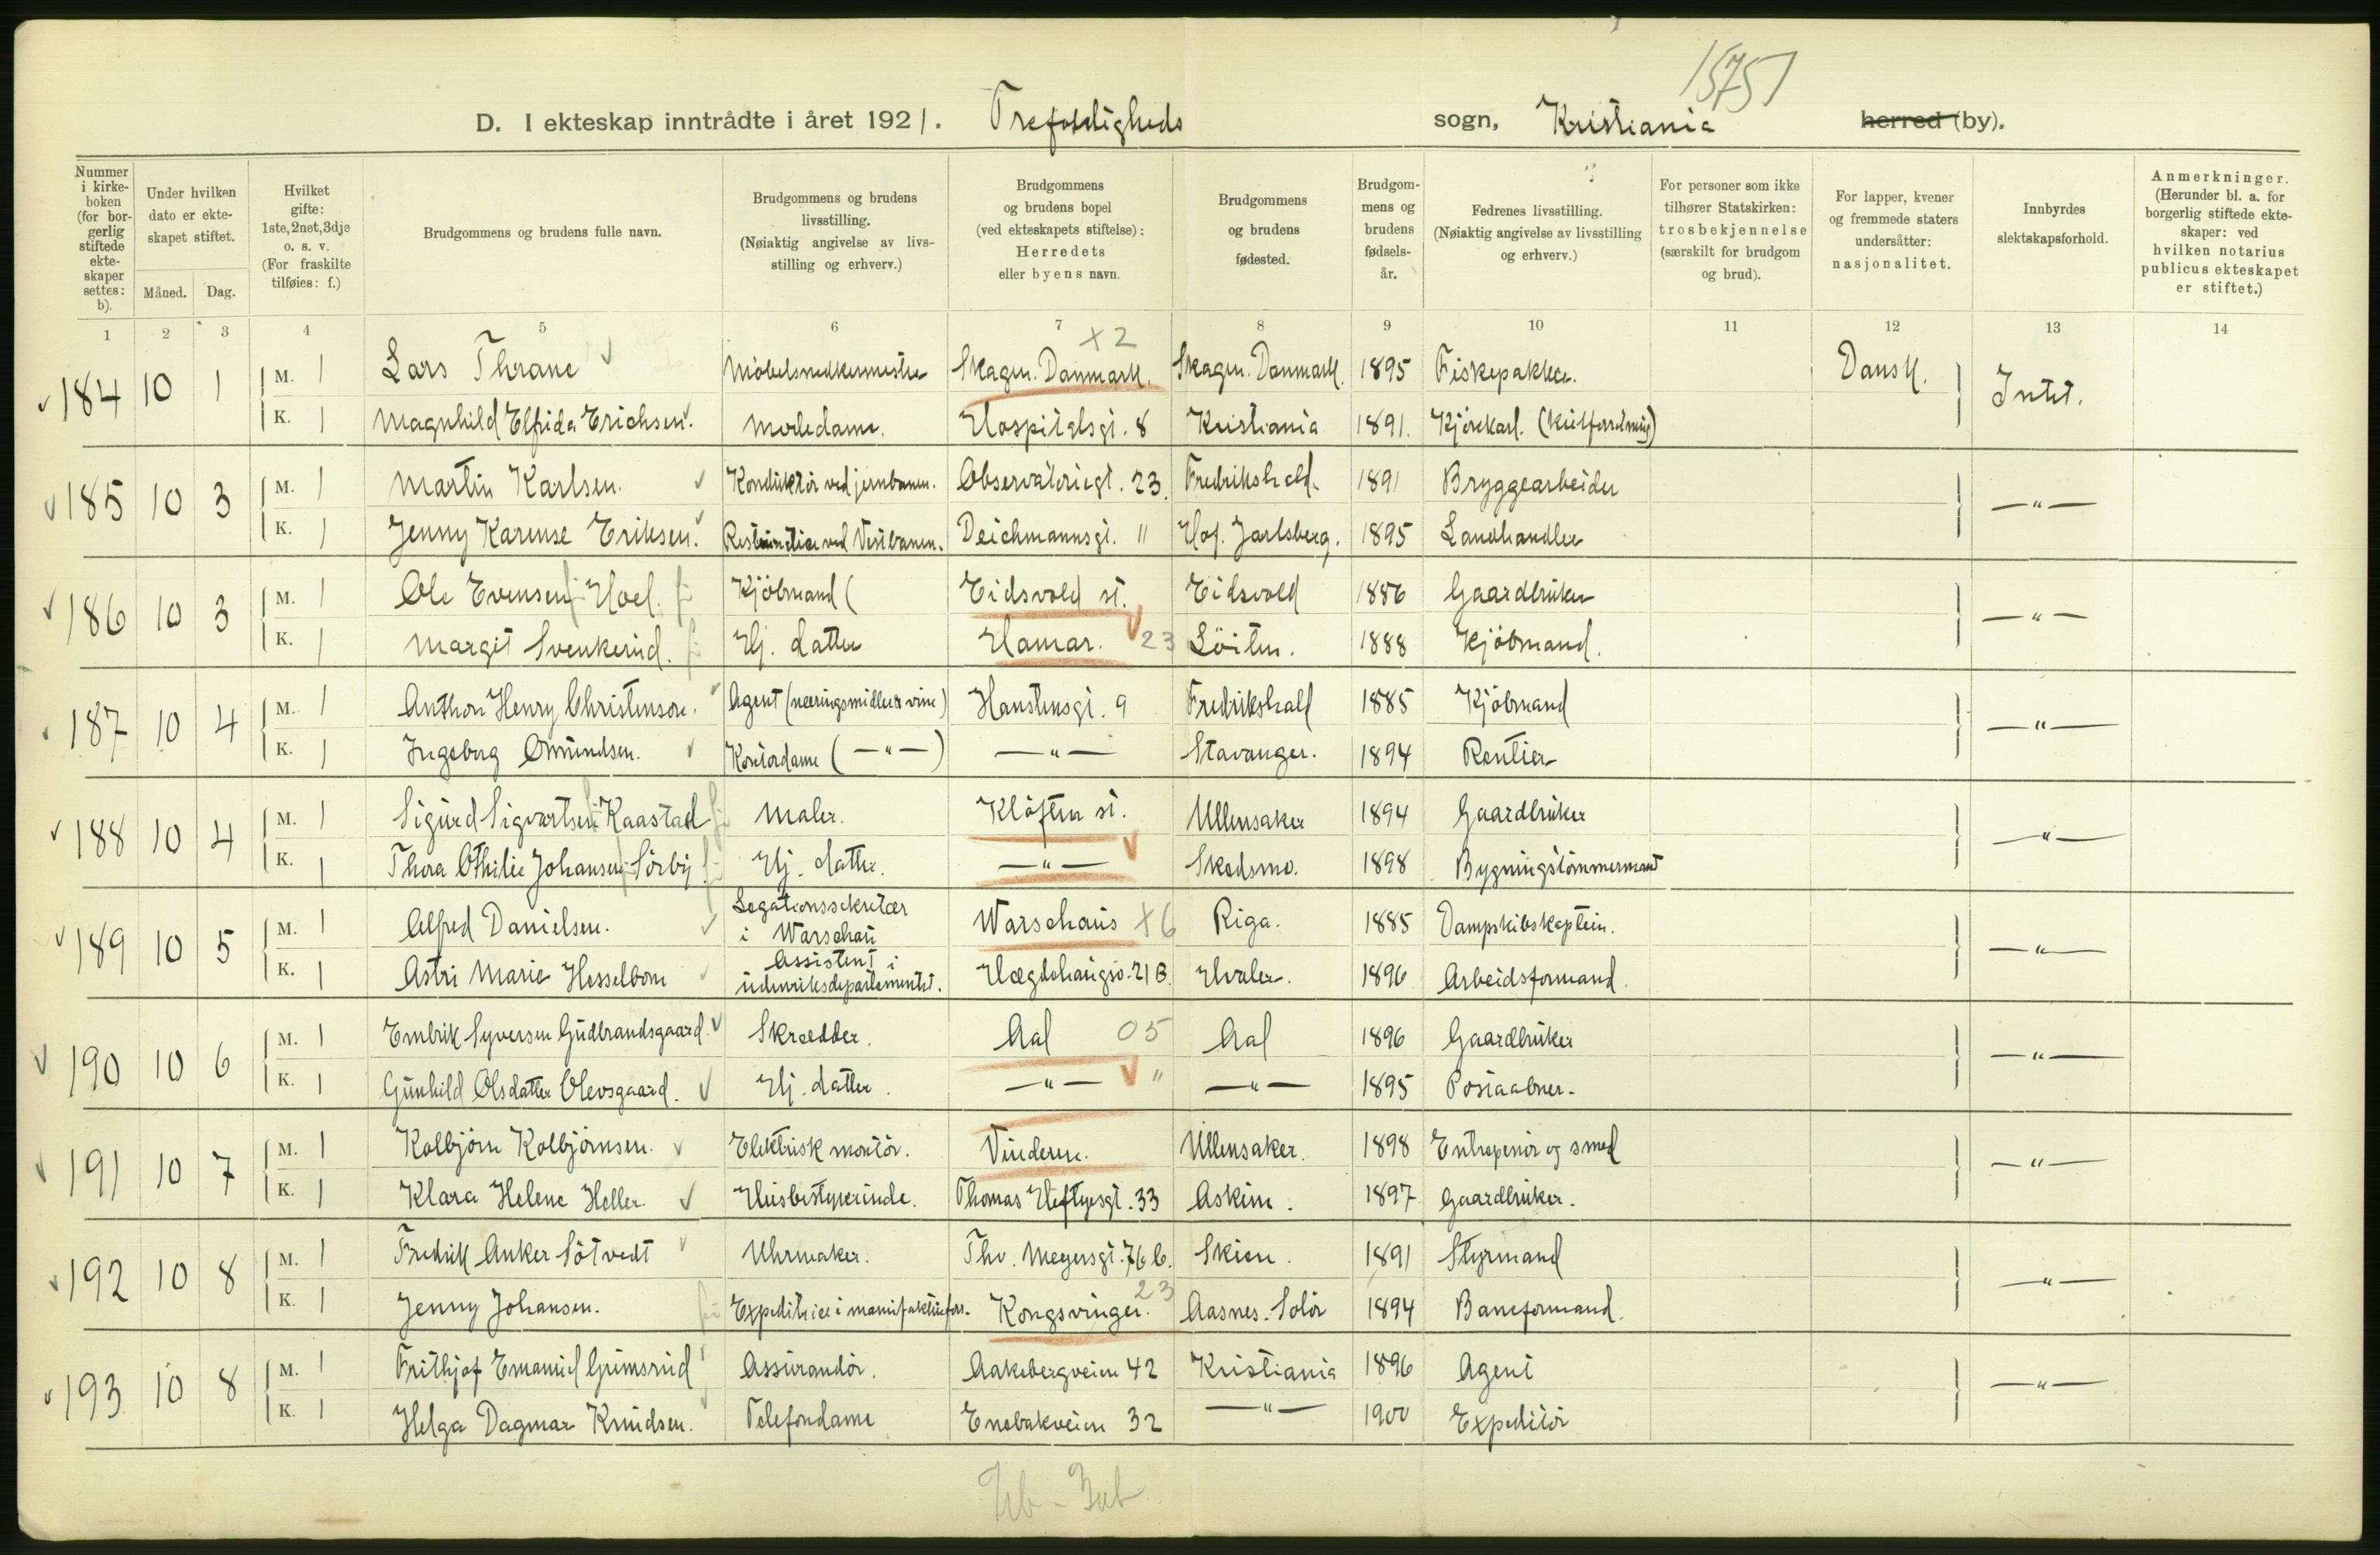 15751
D. I ekteskap inntrådte i året 1921. Trefoldigheds sogn, Kristiania herred (by).
Nummer i kirkeboken (for borgerlig stiftede ekteskaper settes: b).
Under hvilken dato er ekteskapet stiftet.
Måned. Dag.
Hvilket gifte: 1ste, 2net, 3dje o. s. v. (For fraskilte tilføies: f.)
Brudgommens og brudens fulle navn.
Brudgommens og brudens livsstilling. (Nøiaktig angivelse av livsstilling og erhverv.)
Brudgommens og brudens bopel (ved ekteskapets stiftelse): Herredets eller byens navn.
Brudgommens og brudens fødested.
Brudgommens og brudens fødselsår.
Fedrenes livsstilling. (Nøiaktig angivelse av livsstilling og erhverv.)
For personer som ikke tilhører Statskirken: trosbekjennelse (særskilt for brudgom og brud).
For lapper, kvener og fremmede staters undersåtter: nasjonalitet.
Innbyrdes slektskapsforhold.
Anmerkninger. (Herunder bl. a. for borgerlig stiftede ekteskaper: ved hvilken notarius publicus ekteskapet er stiftet.)
1 2 3 4 5 6 7 8 9 10 11 12 13 14
x2
184 10 1 M. 1 Lars Thrane Møbelsnedkermester Skagen. Danmark. Skagen. Danmark. 1895 Fiskepakker. Dansk. Intet.
K. 1 Magnhild Elfrida Erichsen. Modedame. Hospitalsgt. 8 Kristiania 1891. Kjørekarl. (kulforretning)
185 10 3 M. 1 Martin Karlsen. Konduktør ved jernbanen. Observatoriegt. 23. Fredrikshald. 1891 Bryggearbeider —"—
K. 1 Jenny Karense Eriksen. ved Vestbanen. Deichmannsgt. 11 Hof. Jarlsberg. 1895 Landhandler
186 10 3 M. 1 Ole Evensen Hoel. Kjøbmand ( Eidsvold st. Eidsvold 1886 Gaardbruker —"—
K. 1 Margit Svenkerud. Hj. datter Hamar. 23 Löiten. 1888 Kjøbmand.
187 10 4 M. 1 Anthon Henry Christenson. Agent (næringsmidler & vine) Hanstensgt. 9 Fredrikshald 1885 Kjøbmand —"—
K. 1 Ingeborg Omundsen. Kontordame (—"—) —"— Stavanger. 1894 Rentier
188 10 4 M. 1 Sigurd Sigvartsen Kaastad Maler. Kløften st. Ullensaker 1894 Gaardbruker —"—
K. 1 Thora Othilie Johansen Sørby Hj. datter. —"— Skedsmo. 1898 Bygningstømmermand
189 10 5 M. 1 Alfred Danielsen. Legationssekretær i Warschau Warschaus x6 Riga. 1885 Dampskibskaptein. —"—
K. 1 Astri Marie Hesselbom Assistent i udenriksdepartementet. Hægdehaugsv. 21 B. Hvaler. 1896 Arbeidsformand.
190 10 6 M. 1 Embrik Syversen Gudbrandsgaard. Skrædder. Aal 05 Aal 1896 Gaardbruker —"—
K. 1 Gunhild Olsdatter Olevsgaard. Hj. datter. —"— " —"— 1895 Postaabner.
191 10 7 M. 1 Kolbjørn Kolbjørnsen. Elektrisk montør. Vinderen. Ullensaker. 1898 Entreprenør og smed —"—
K. 1 Klara Helene Heller. Husbestyrerinde. Thomas Heftyesgt. 33 Askim. 1897 Gaardbruker.
192 10 8 M. 1 Fredrik Anker Søtvedt Uhrmaker. Thv. Meyersgt. 76 b. Skien. 1891 Styrmand —"—
K. 1 Jenny Johansen. Expeditrice i manufakturforr. Kongsvinger. 23 Aasnes. Solør 1894 Baneformand.
193 10 8 M. 1 Frithjof Emanuel Grimsrud Assurandør. Aakebergveien 42 Kristiania 1896 Agent —"—
K. 1 Helga Dagmar Knudsen. Telefondame Enebakveien 32 —"— 1900 Expeditør